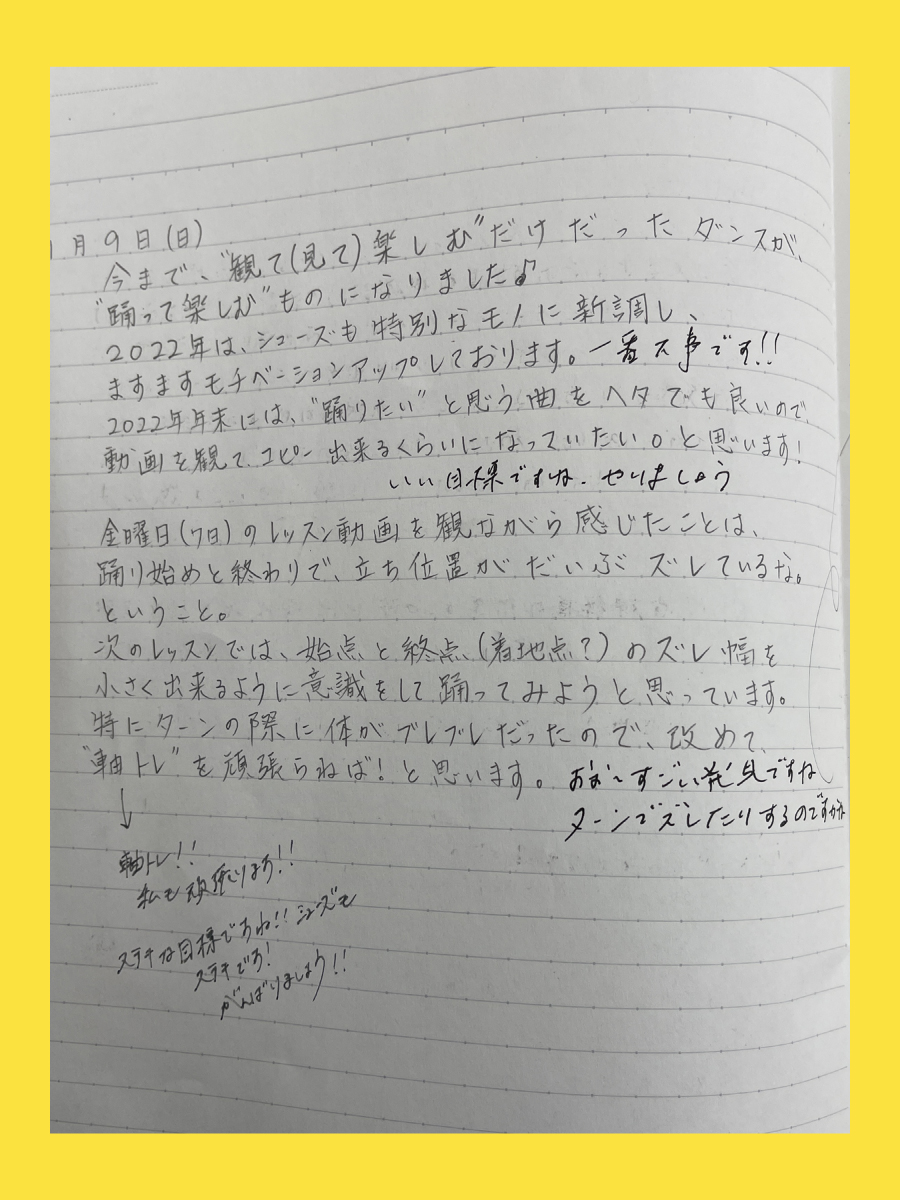 1月9日(日)
今まで、“観て(見て)楽しむ”だけだったダンスが、
“踊って楽しむ”ものになりました♪
2022年は、シューズも特別なモノに新調し、
ますますモチベーションアップしております。一番大事です!!
2022年年末には、“踊りたい”と思う曲をヘタでも良いので、
動画を観て、コピー出来るくらいになっていたい。と思います!
いい目標ですね。やりましょう
金曜日(7日)のレッスン動画を観ながら感じたことは、
踊り始めと終わりで、立ち位置がだいぶズレているな。
ということ。
次のレッスンでは、始点と終点(着地点?)のズレ幅を
小さく出来るように意識をして踊ってみようと思っています。
特にターンの際に体がブレブレだったので、改めて、
“軸トレ”を頑張らねば!と思います。おお〜すごい発見ですね
ターンでズレたりするのですがね
↓
軸トレ!!
私も頑張ります!!
ステキな目標ですね!!シューズも
ステキです!
がんばりましょう!!